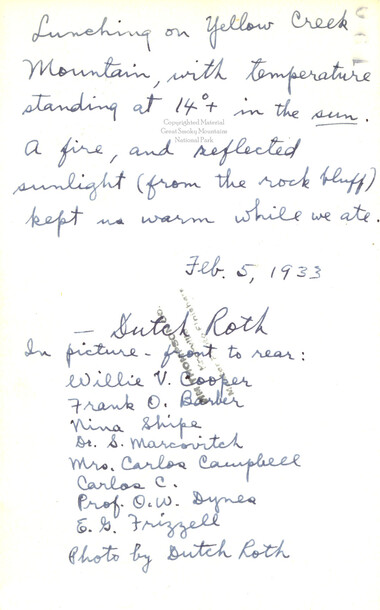 Lunching on Yellow Creek
Mountain, with temperature
standing at 14°+ in the sun.
Copyrighted Material
Great Smoky Mountains
National Park
A fire, and reflected
sunlight (from the rock bluff)
kept us warm while we ate.
Feb. 5, 1933
— Dutch Roth
In picture - front to rear:
Willie V. Cooper
Frank O. Barber
Nina Shipe
Dr. S. Marcovitch
Mrs. Carlos Campbell
Carlos C.
Prof. O.W. Dynes
E. G. Frizzell
Photo by Dutch Roth